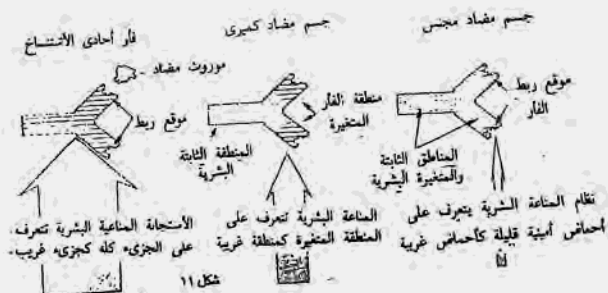 جسم مضاد مجنس
جسم مضاد كميرى
فأر أحادى الأنتساخ
موقع ربط
الفأر
المناطق الثابتة
والمتغيرة البشرية
نظام المناعة البشرية يتعرف على
أحماض أمينية قليلة كأحماض غريبة
منطقة الفأر
المتغيرة
المنطقة الثابتة
البشرية
المناعة البشرية تتعرف على
المنطقة المتغيرة كمنطقة غريبة
موروث مضاد
موقع ربط
الأستجابة المناعية البشرية تتعرف
على الجزىء كله كجزىء غريب.
شكل ١١